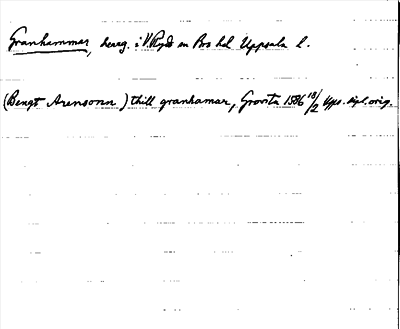 Granhammar, herrg. i V. Ryds sn Bro hd Uppsala l.
(Bengt Arensonn) thill granhamar, Gröneta 1586 18/2 Ups. dipl. orig.